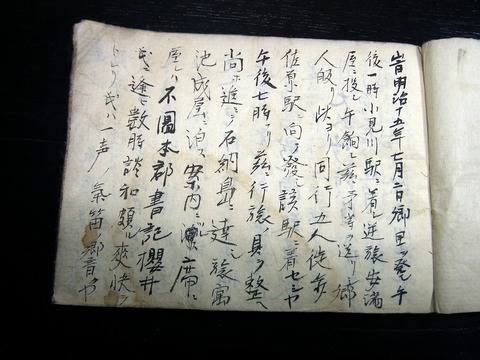 旹明治十五年七月二日郷里ヲ発シ午
後一時小見川駅ニ着シ逆旅安満
屋ニ投シ午餉ヲ喫シ予等ヲ送リ郷
人ハ皈リ此ヨリ同行五人徒歩
佐原駅ニ向ヲ発シ該駅ニ着セシヤ
午後七時ナリ茲ニ行旅ノ具ヲ整ヘ
尚ホ進ミテ石納島ニ達シ旅寓
池成屋ニ泊ス案内ニ席ニ
不圖本郡書記櫻井
氏ニ逢ヒ数時談和頗ル爽快ナ
リ氏ハ一声ノ氣笛郷音ヲ